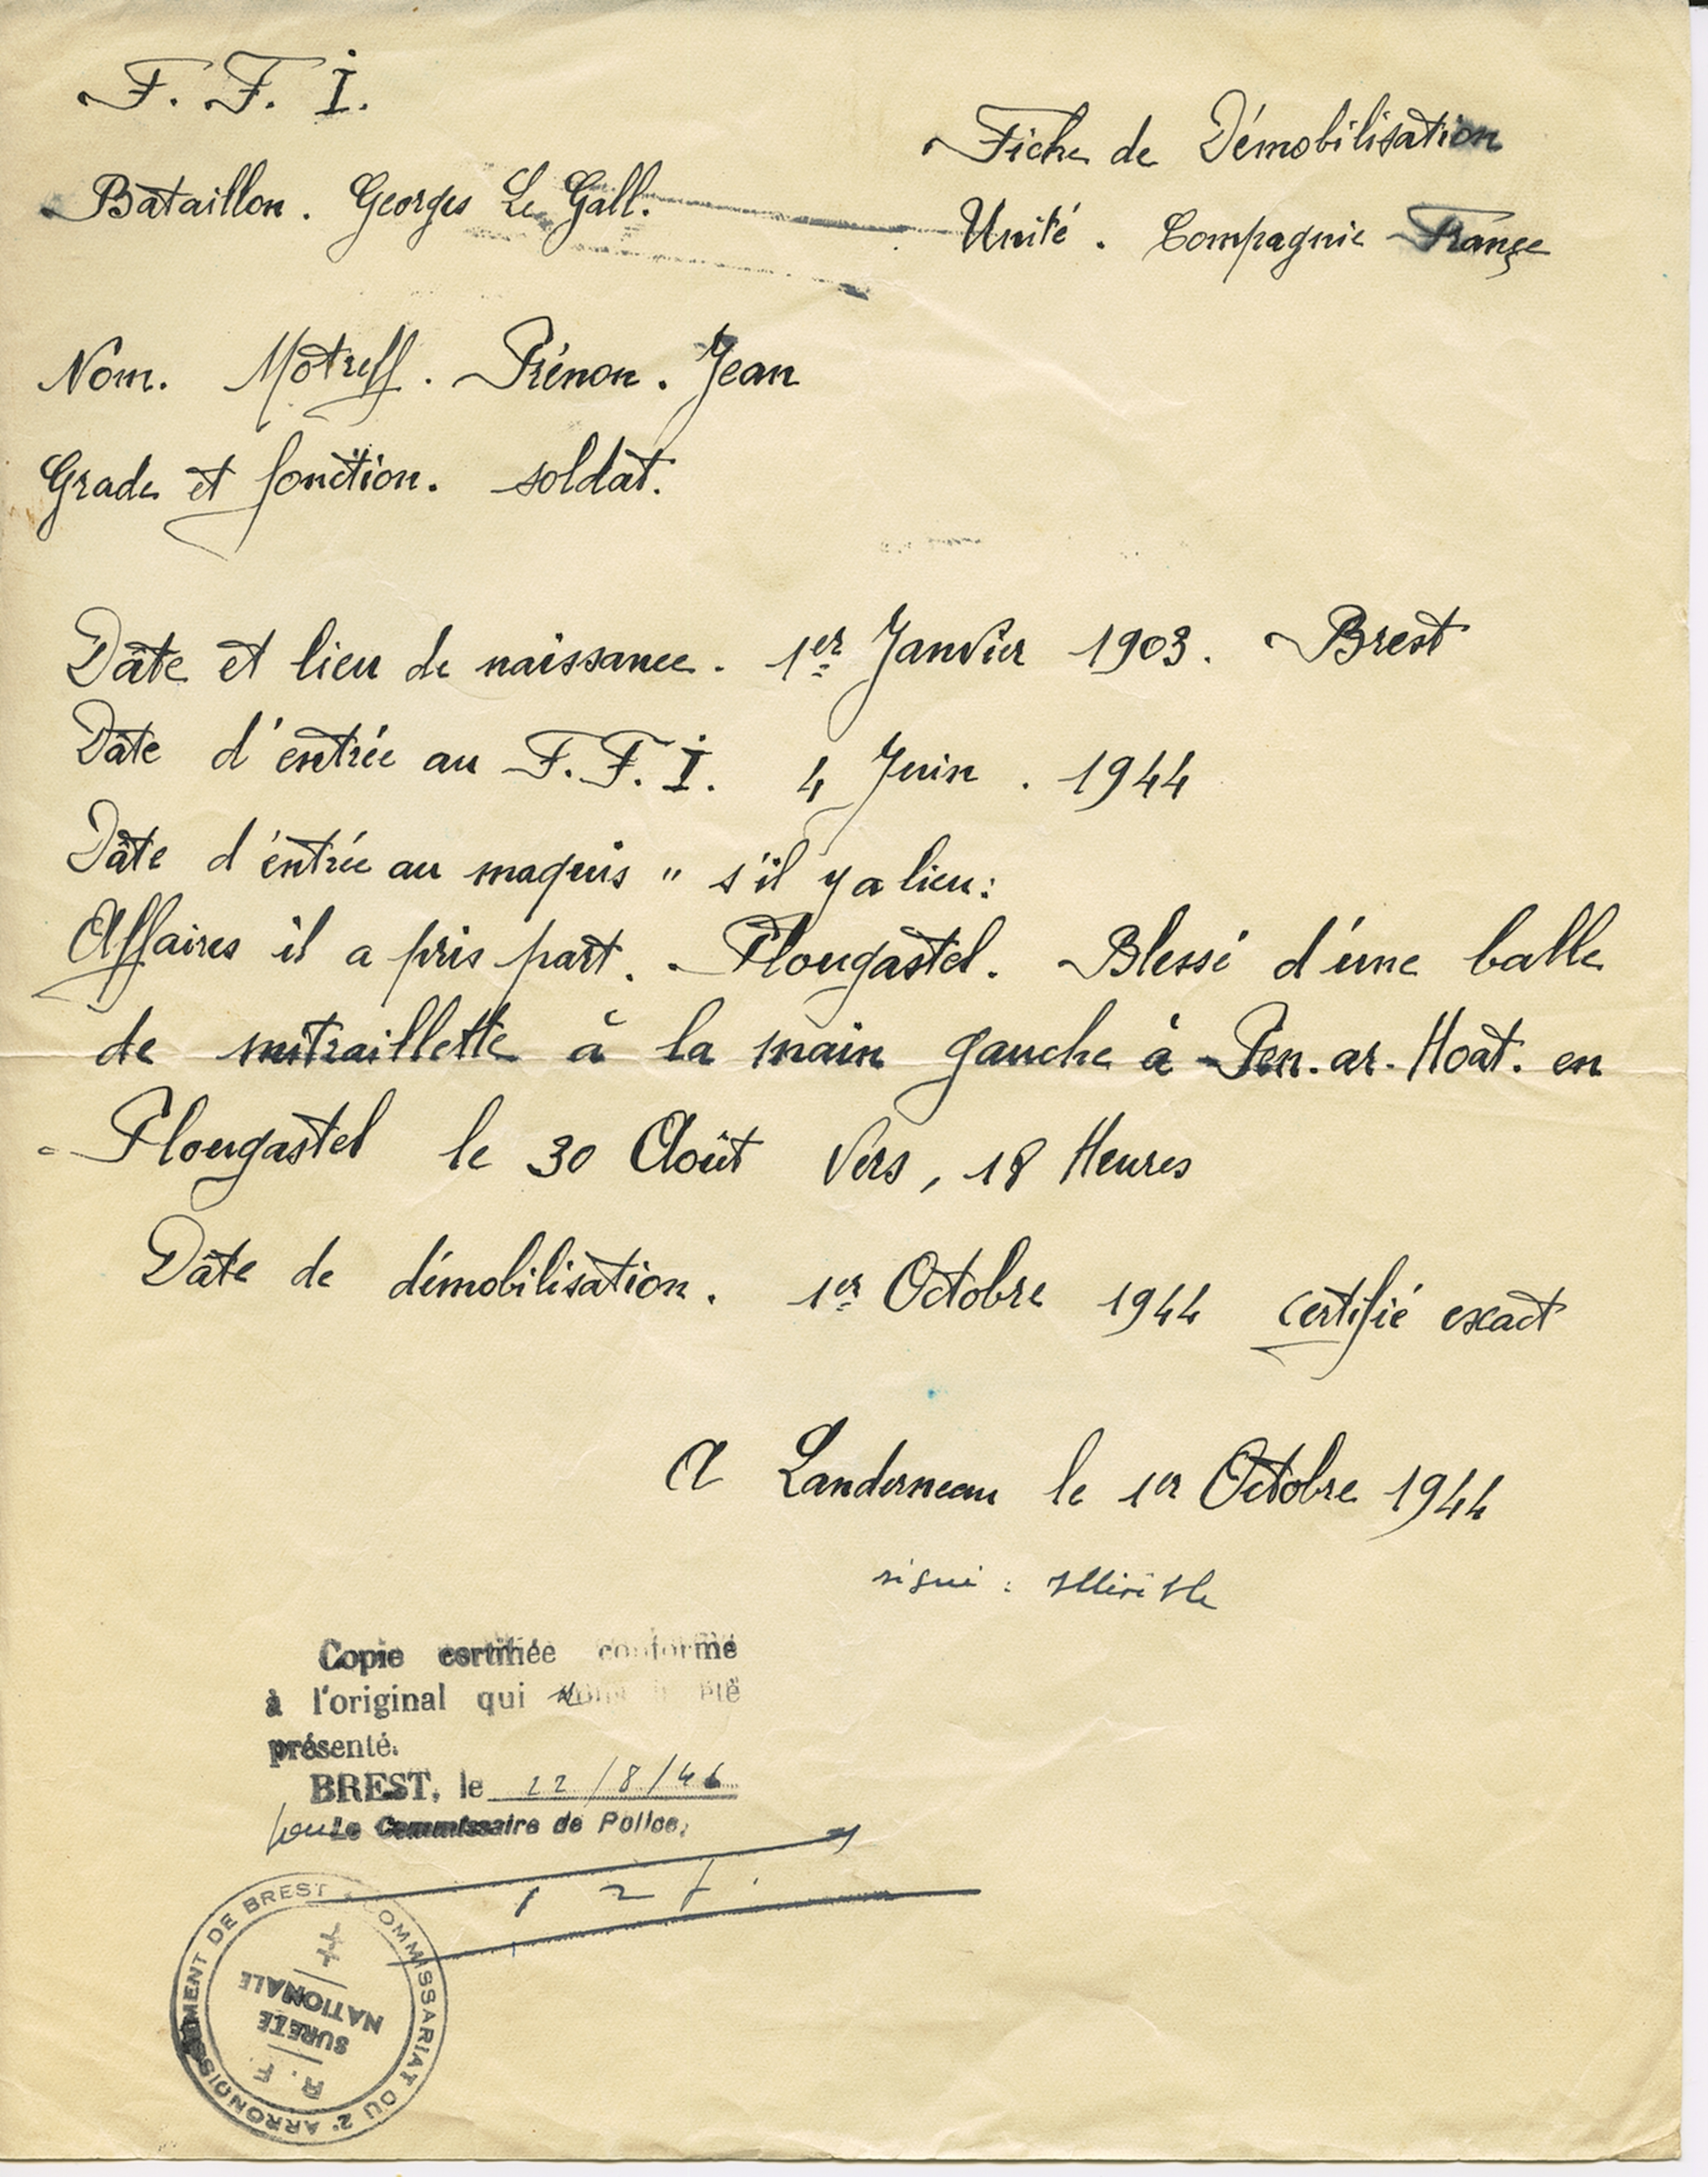 F. F. I.
Fiche de Démobilisation
Bataillon. Georges Le Gall.
Unité. Compagnie France
Nom. Motreff. Prénon. Jean
Grade et fonction. soldat.
Dâte et lieu de naissance. 1er Janvier 1903. Brest
Dâte d'entrée au F.F.I. 4 Juin. 1944
Dâte d'entrée au maquis " s'il y a lieu:
Affaires il a pris part. Plougastel. Blessé d'une balle
de mitraillette à la main gauche à Pen.ar.Hoat. en
Plougastel le 30 Août Vers, 18 Heures
Dâte de démobilisation. 1er Octobre 1944 certifié exact
A Landerneau le 1er Octobre 1944
signé : illisible
Copie certifiée conforme
à l'original qui été
présenté.
BREST, le 22/8/46
pour Le Commissaire de Police,
COMMISSARIAT DU 2e ARRONDISSEMENT DE BREST
R. F.
SURETÉ
NATIONALE